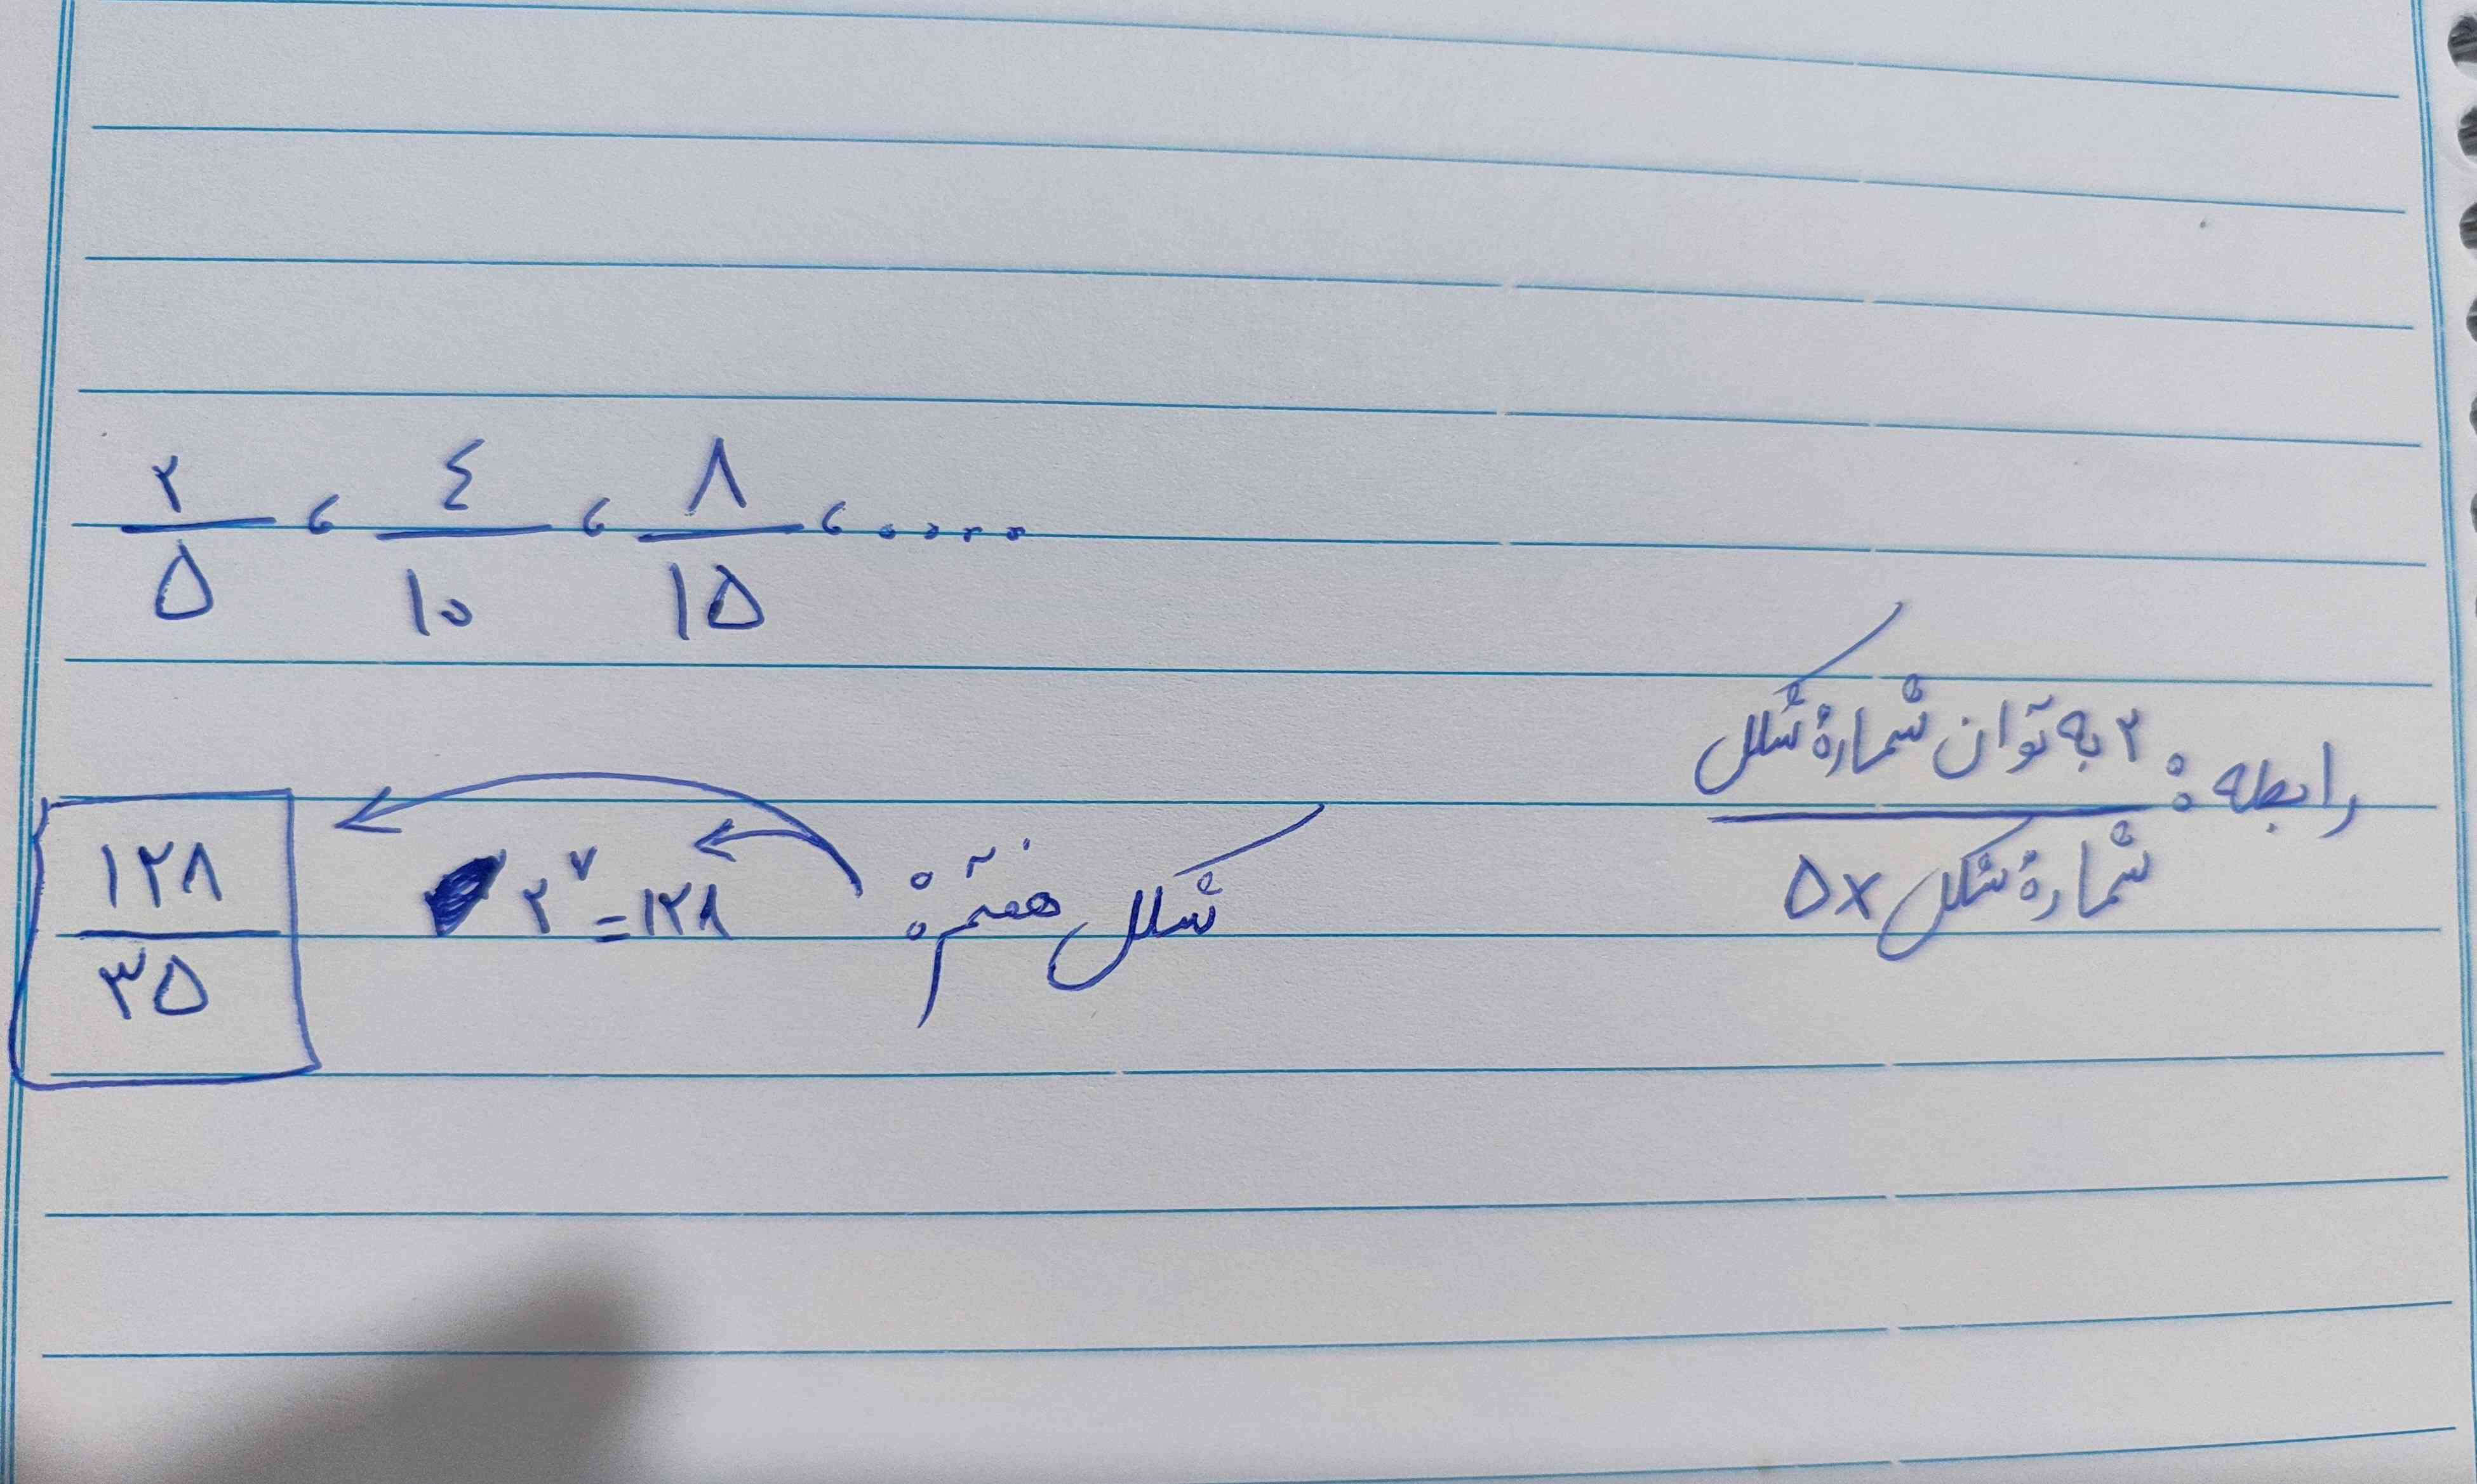 ۲/۵ ، ٤/۱۰ ، ۸/۱۵ ، ....
رابطه : ۲ به توان شمارهٔ شکل
شمارهٔ شکل ×۵
شکل هفتم : ۲^۷ = ۱۲۸
۱۲۸/۳۵